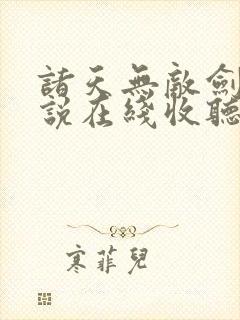 諸天無敵劍
說在綫收聽
寒菲兒